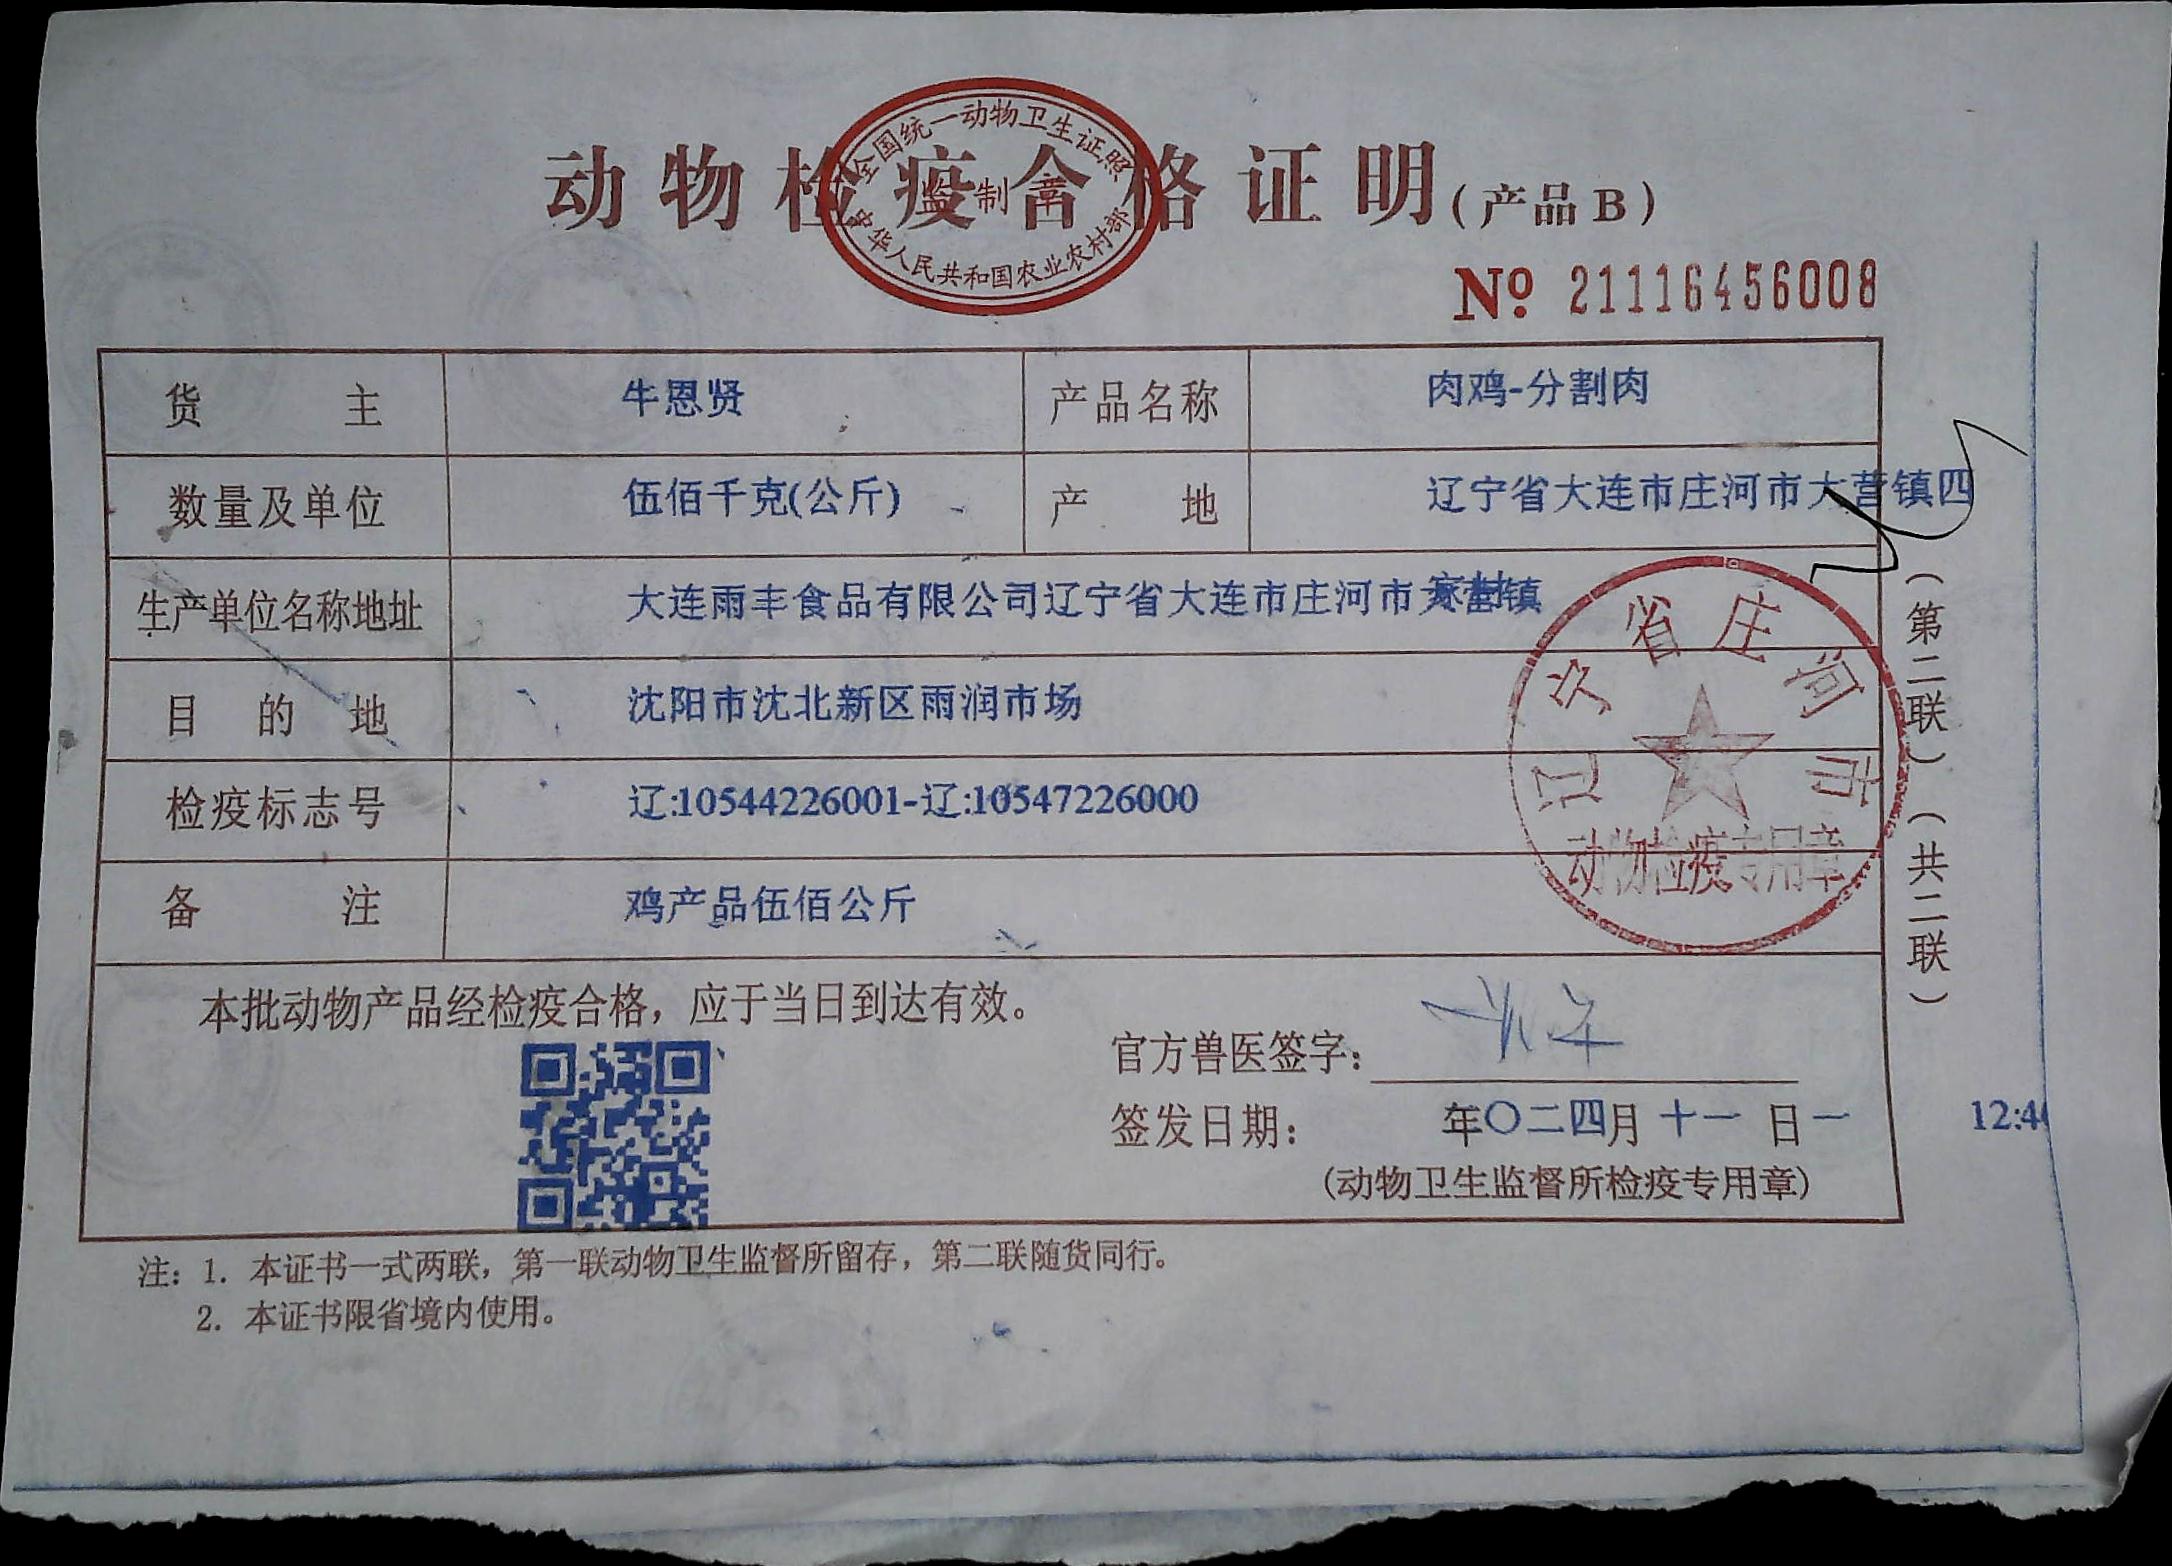 动物检疫合格证明(产品B)
全国统一动物卫生证照
监制章
中华人民共和国农业农村部
№ 21116456008
货主 牛恩贤 产品名称 肉鸡-分割肉
数量及单位 伍佰千克(公斤) 产地 辽宁省大连市庄河市大营镇四
生产单位名称地址 大连雨丰食品有限公司辽宁省大连市庄河市大营镇
目的地 沈阳市沈北新区雨润市场
检疫标志号 辽:10544226001-辽:10547226000
备注 鸡产品伍佰公斤
辽宁省庄河市
动物检疫专用章
(第二联)(共二联)
本批动物产品经检疫合格，应于当日到达有效。
官方兽医签字：
签发日期： 年〇二四月十一日一 12:4
(动物卫生监督所检疫专用章)
注：1. 本证书一式两联，第一联动物卫生监督所留存，第二联随货同行。
2. 本证书限省境内使用。